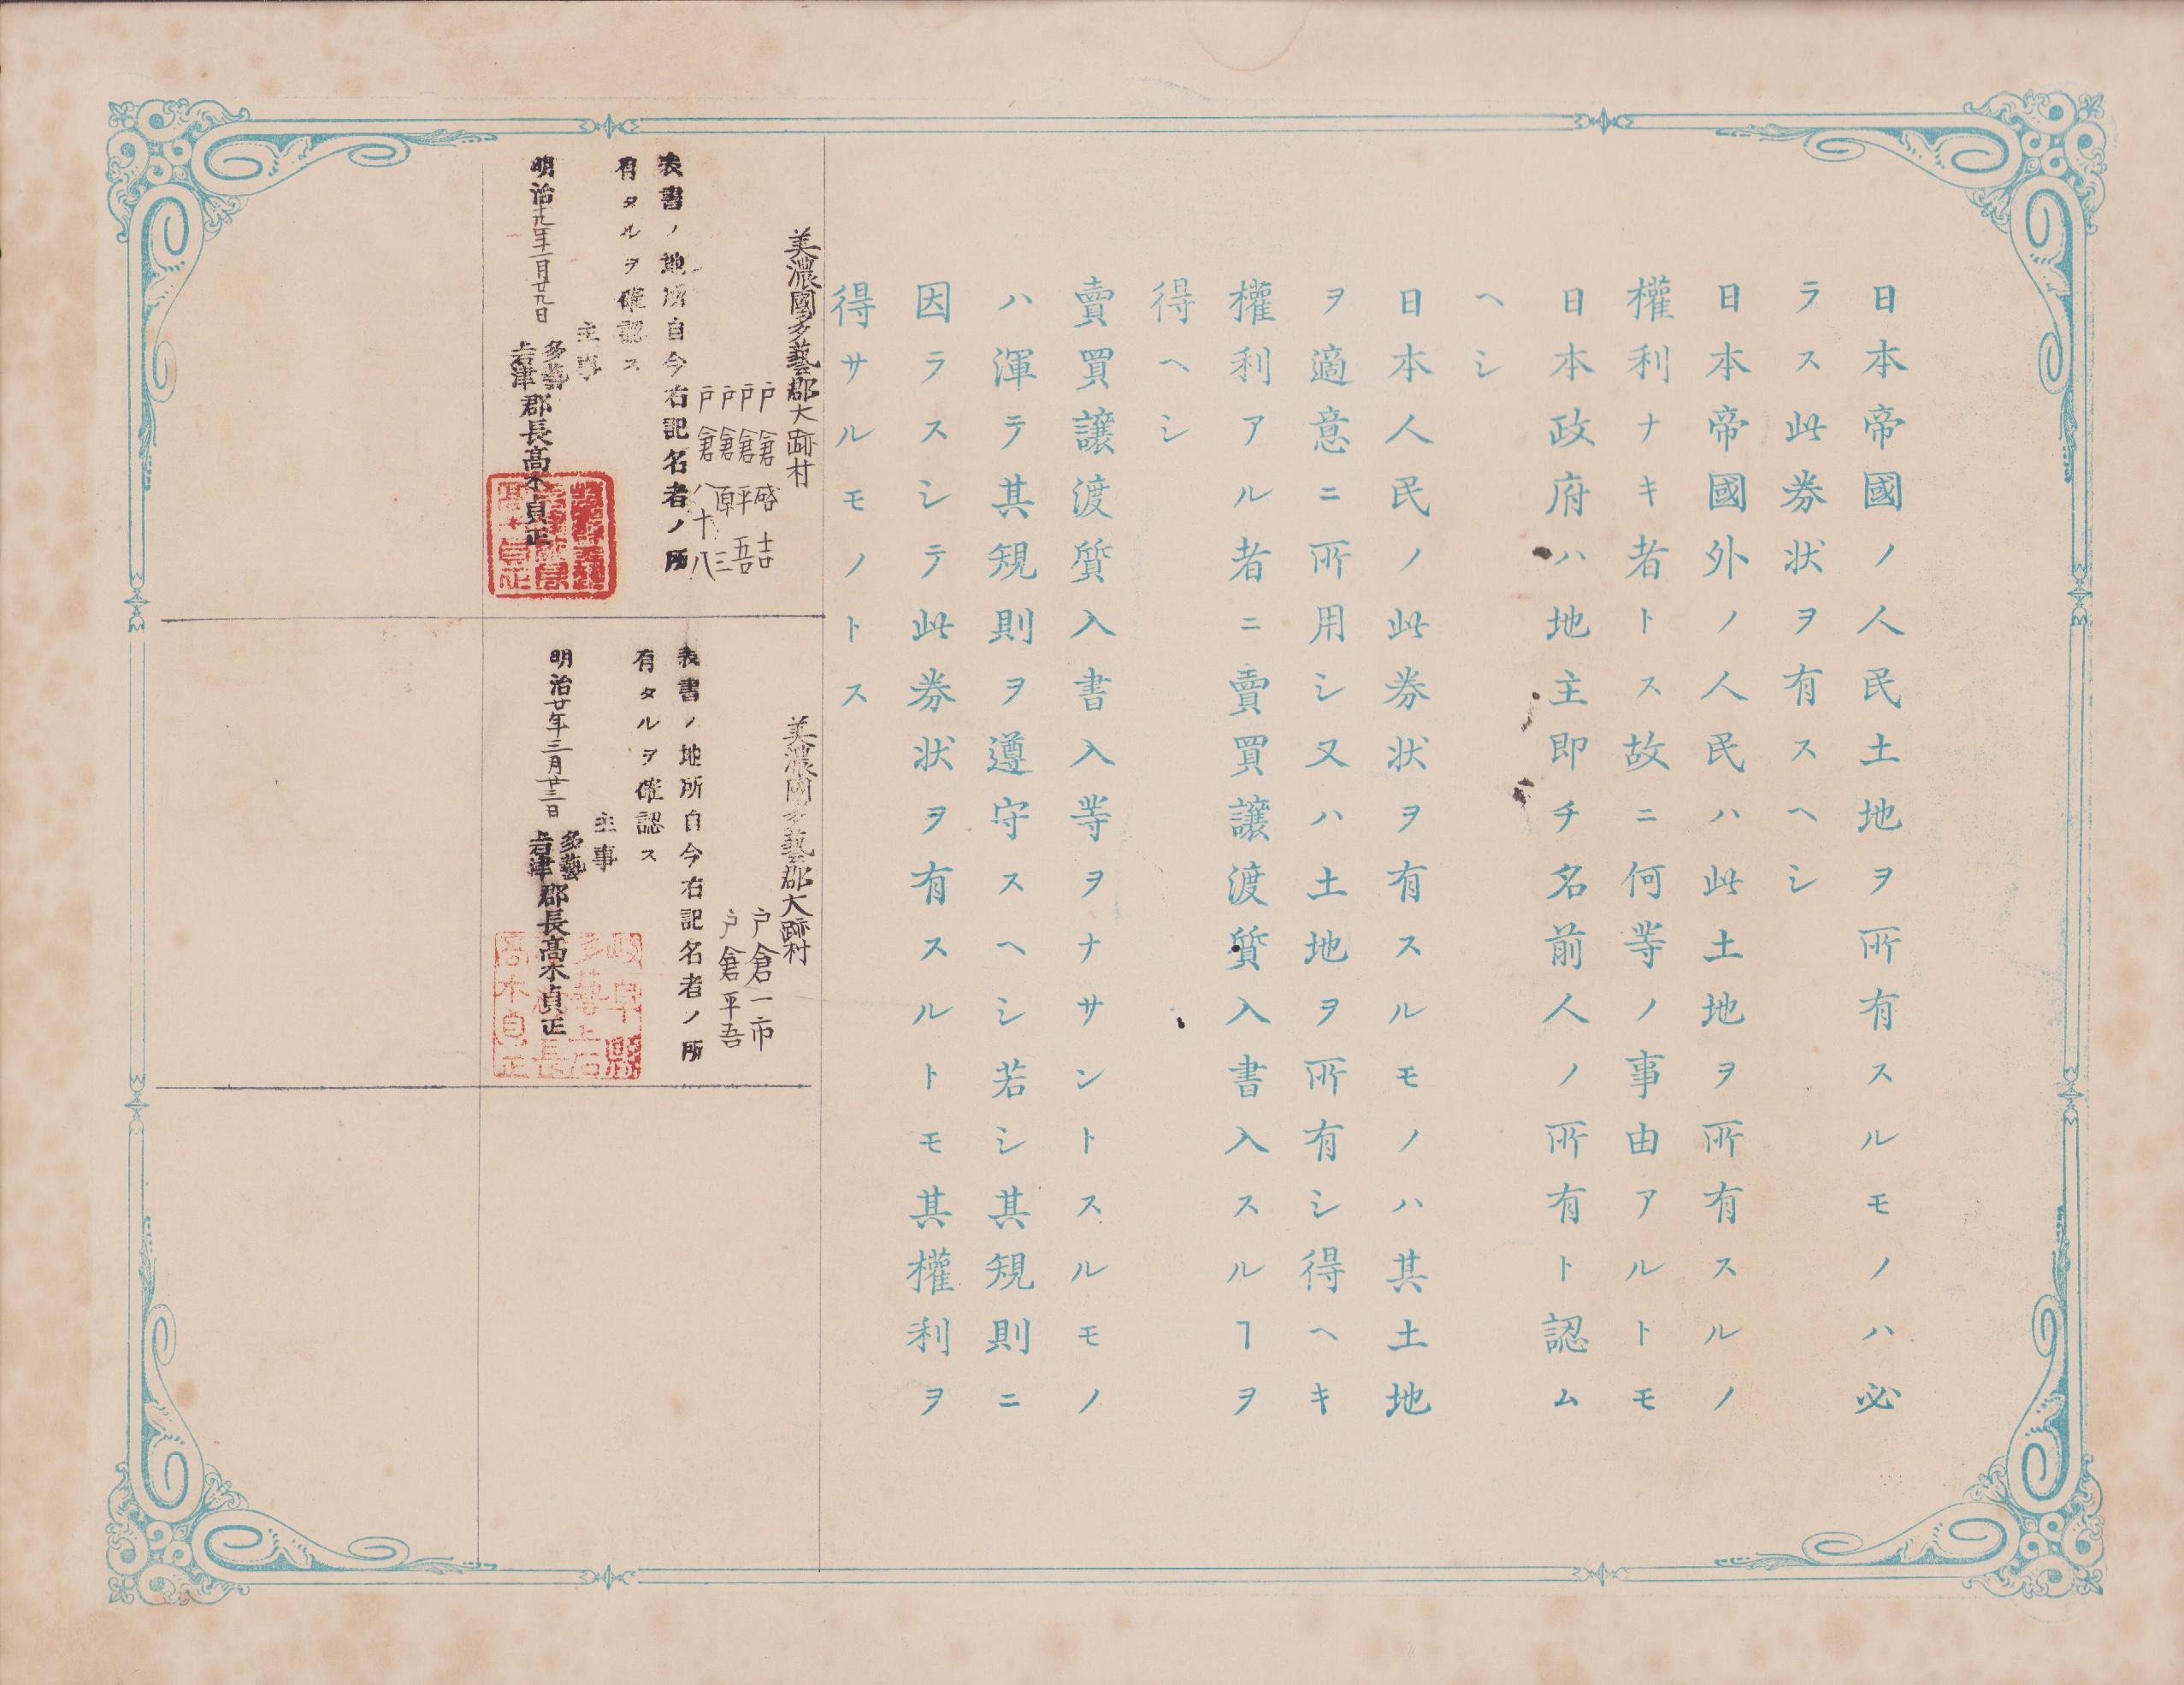 日本帝國ノ人民土地ヲ所有スルモノハ必
ラス此券状ヲ有スヘシ
日本帝國外ノ人民ハ此土地ヲ所有スルノ
權利ナキ者トス故ニ何等ノ事由アルトモ
日本政府ハ地主即チ名前人ノ所有ト認ム
ヘシ
日本人民ノ此券状ヲ有スルモノハ其土地
ヲ適意ニ所用シ又ハ土地ヲ所有シ得ヘキ
權利アル者ニ賣買譲渡質入書入スルヿヲ
得ヘシ
賣買譲渡質入書入等ヲナサントスルモノ
ハ渾テ其規則ヲ遵守スヘシ若シ其規則ニ
因ラスシテ此券状ヲ有スルトモ其權利ヲ
得サルモノトス
美濃國多藝郡大跡村
戸倉啓吉
戸倉平吾
戸倉原三
戸倉八十八
表書ノ地所自今右記名者ノ所
有タルヲ確認ス
主事
明治十九年一月廿九日
多藝
上石津
郡長高木貞正
美濃國多藝郡大跡村
戸倉一市
戸倉平吾
表書ノ地所自今右記名者ノ所
有タルヲ確認ス
主事
明治廿年三月廿三日
多藝
上石津
郡長高木貞正
岐阜縣
多藝上石
津郡長
高木貞正